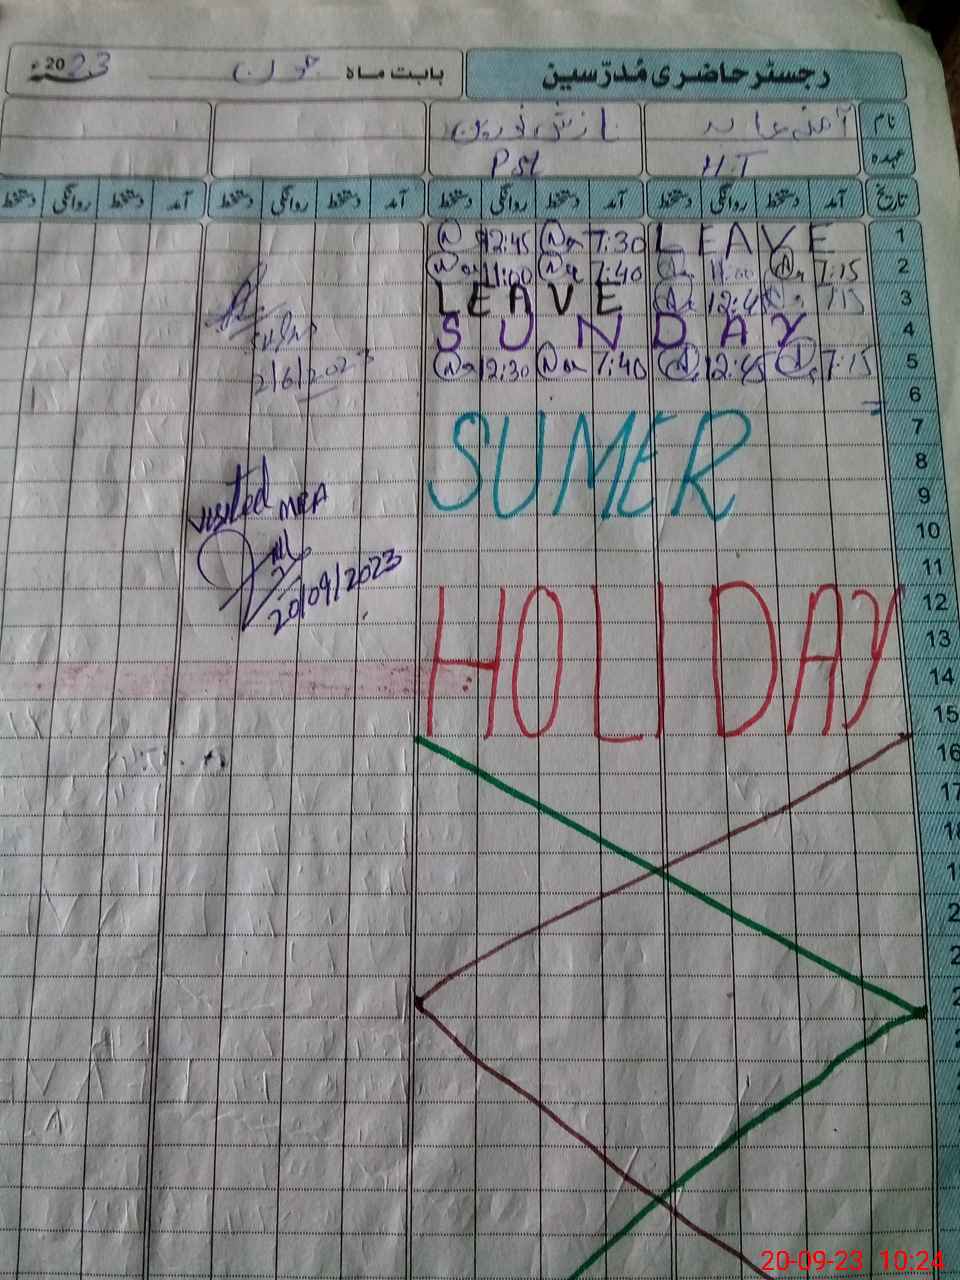 رجسٹر حاضری مُدرّسین
بابت ماہ جون 2023ء
نام آمنہ عابد نازش نورین
عہدہ H.T PST
تاریخ آمد دستخط روانگی دستخط آمد دستخط روانگی دستخط آمد دستخط روانگی دستخط آمد دستخط روانگی دستخط
1 LEAVE 7:30 12:45
2 7:15 11:00 7:40 11:00
3 7:15 12:45 LEAVE
4 SUNDAY
5 7:15 12:45 7:40 12:30
6
7
8
9
10
11
12
13
14
15
16
17
2/6/2023
SUMER
visited MEA
20/09/2023
HOLIDAY
20-09-23 10:24